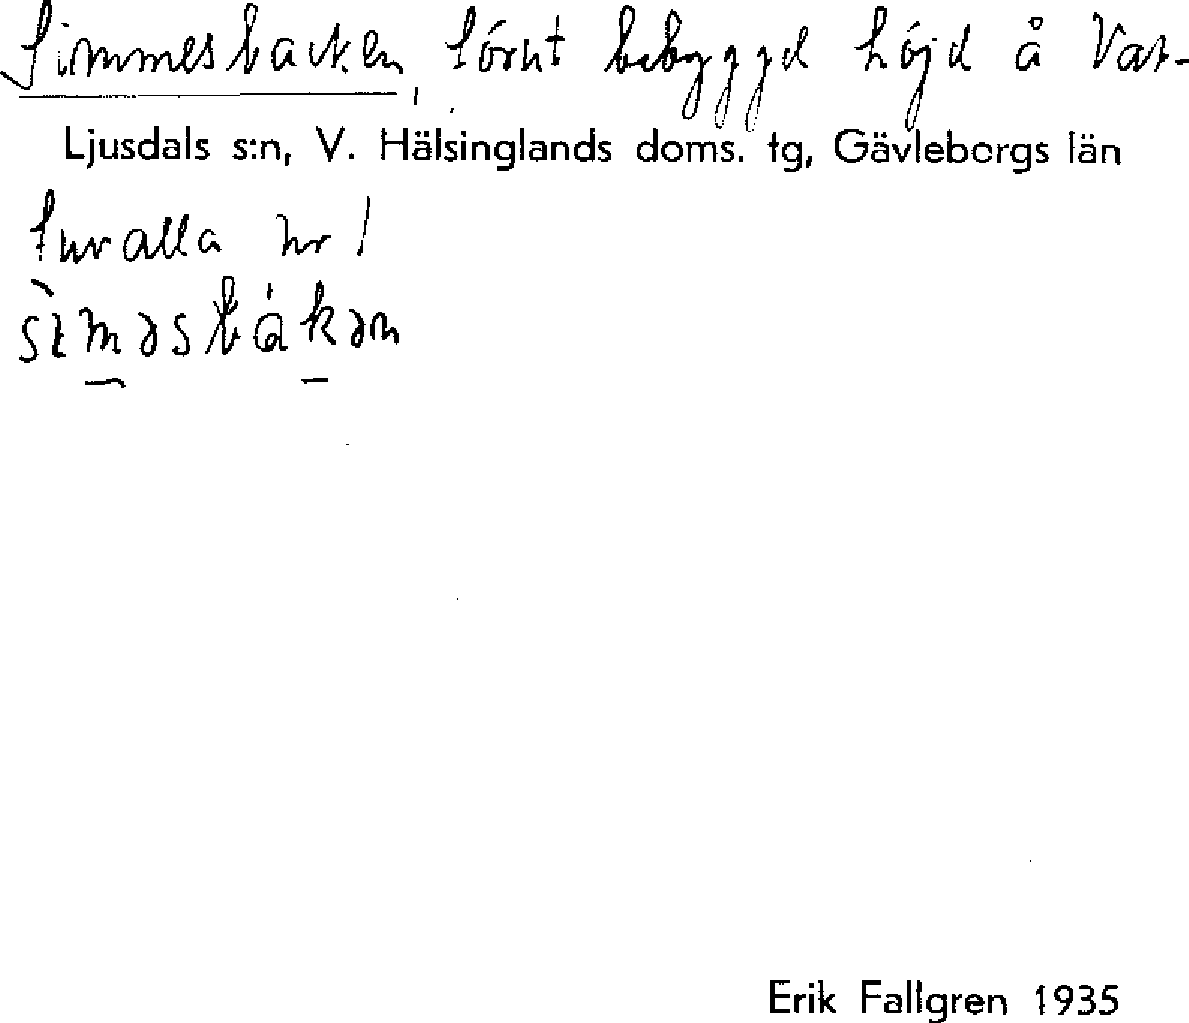 Simmesbacken, förut bebyggd höjd å Vat-
Ljusdals s:n, V. Hälsinglands doms. tg, Gävleborgs län
tuvalla nr 1
sìməsbákən
Erik Fallgren 1935